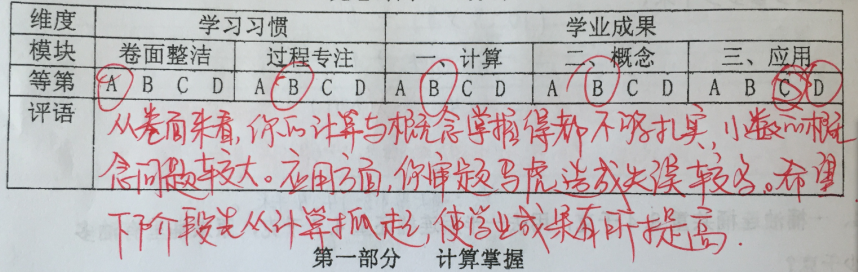 维度 学习习惯 学业成果
模块 卷面整洁 过程专注 一、计算 二、概念 三、应用
等第 A B C D A B C D A B C D A B C D A B C D
评语 从卷面来看,你的计算与概念掌握得都不够扎实,小数的概
念问题较大。应用方面,你审题马虎造成失误较多。希望
下个阶段先从计算抓起,使学业成果有所提高.
第一部分 计算掌握